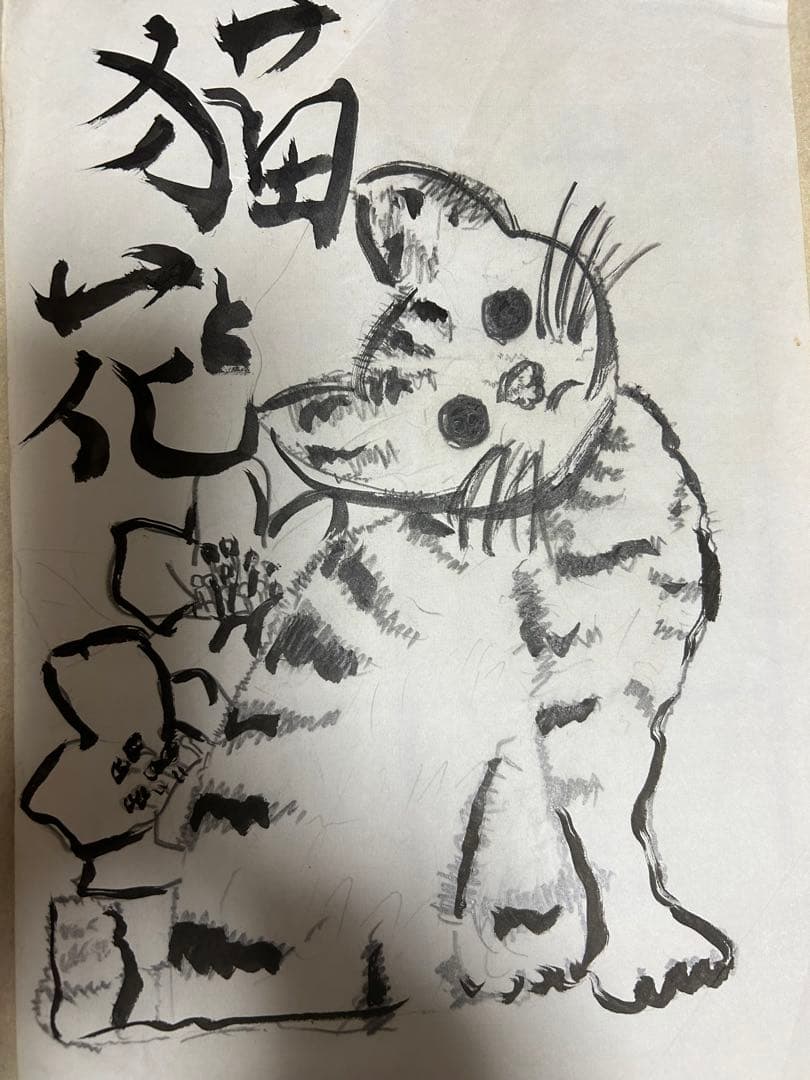 猫
と
花